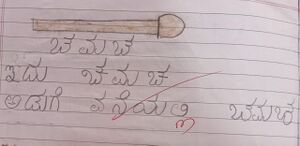 ಚಮಚ
ಇದು ಚಮಚ
ಅಡುಗೆ ಮನೆಯಲ್ಲಿ ಚಮಚ